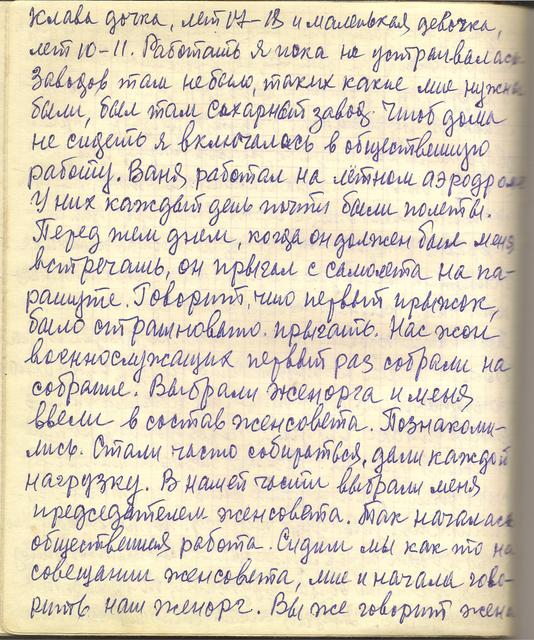 Клава дочка, лет 17-18 и маленькая девочка,
лет 10-11. Работать я пока не устраивалась
Заводов там небыло, таких какие мне нужны
были, был там Сахарный завод. Чтоб дома
не сидеть я включалась в общественную
работу. Ваня работал на лётном аэродроме
У них каждый день почти были полеты.
Перед тем днем, когда он должен был меня
встречать, он прыгал с самолета на па-
рашуте. Говорит, что первый прыжок,
было страшновато прыгать. Нас жон
военнослужащих первый раз собрали на
собрание. Выбрали женорга и меня
ввели в состав женсовета. Познакоми-
лись. Стали часто собираться, дали каждой
нагрузку. В нашей части выбрали меня
председателем женсовета. Так началась
общественная работа. Сидим мы как то на
совещании женсовета, мне и начала гово-
рить наш женорг. Вы же говорит жена